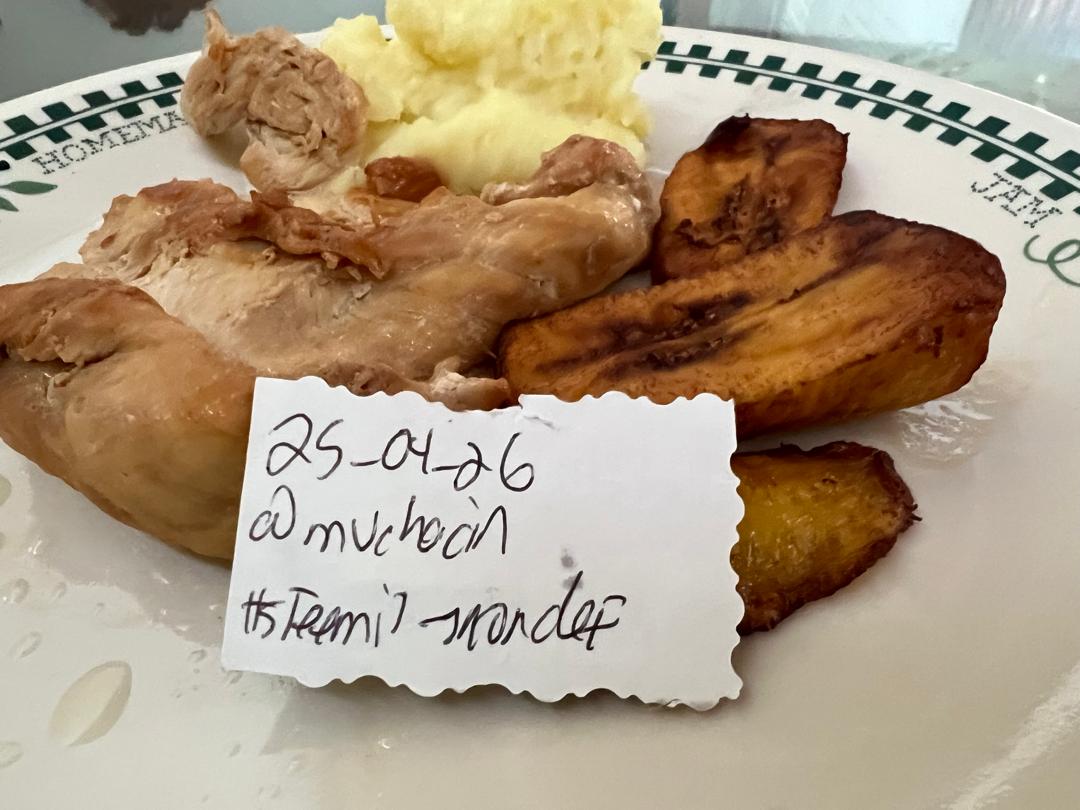 HOMEMA
JAM
25-04-26
@muchocin
#steemit-wonder